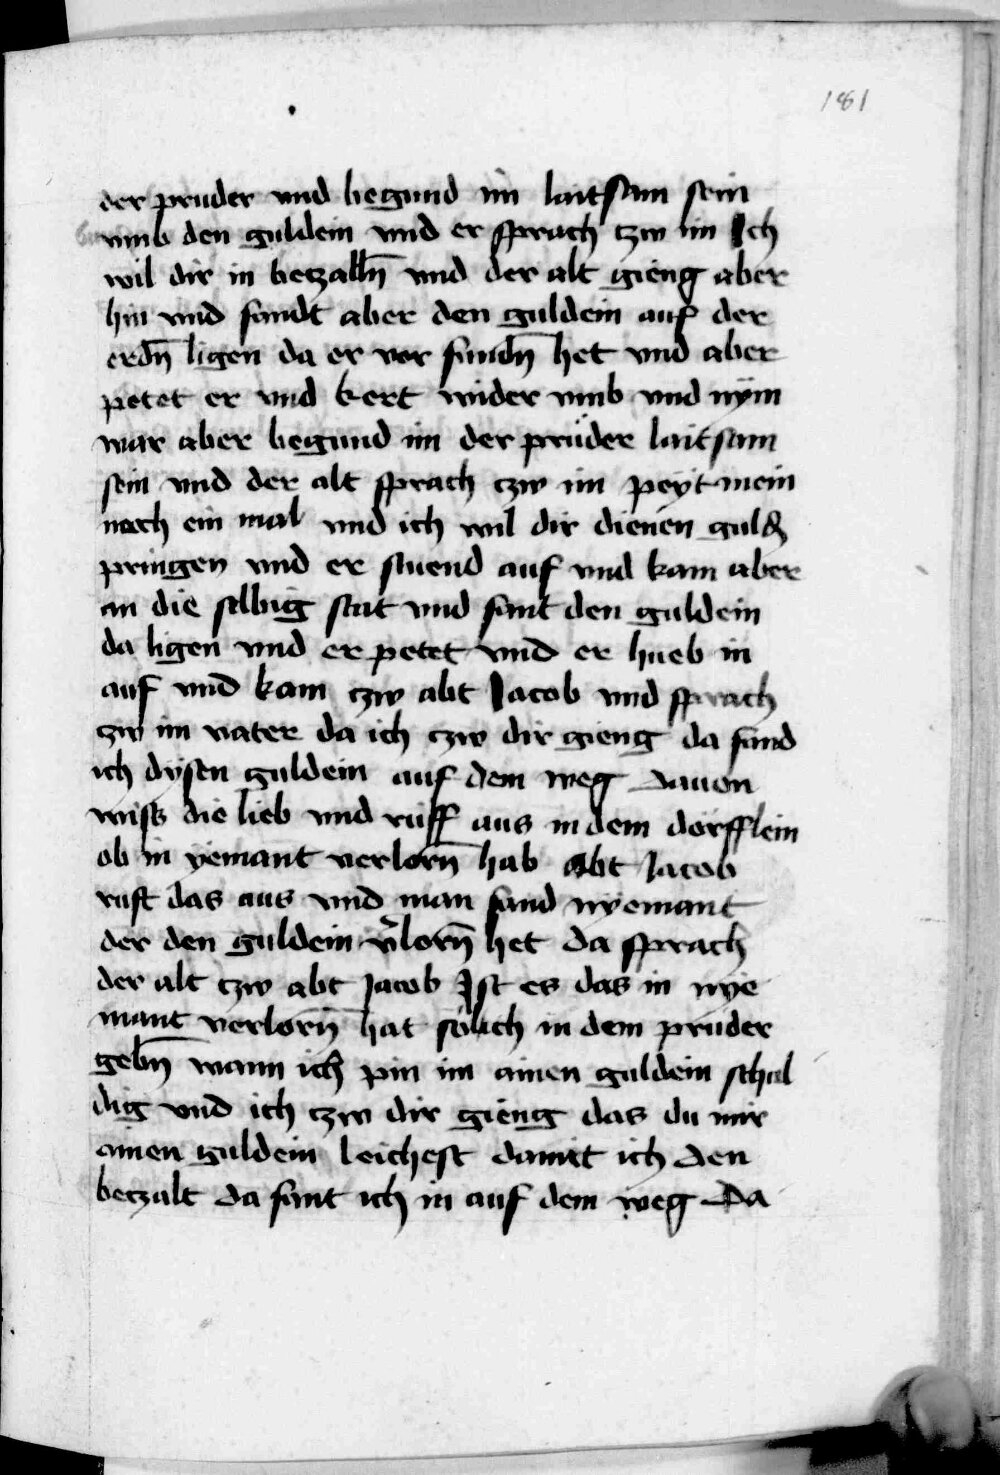 181
der pruder vnd begund im laitsam sein
vmb den guldein vnd er sprach czw im Ich
wil dir in betzalln̄ vnd der alt gieng aber
hin vnd fandt aber den guldein auf der
erdn̄ ligen da er vor fundn̄ het vnd aber
petet er vnd kert wider vmb vnd nÿm
war aber begund im der prüder laitsam
sein vnd der alt sprach czw im peyt mein
noch ein mal vnd ich wil dir dienen guld
pringen vnd er stuend auf vnd kam aber
an die selbig stat vnd fant den guldein
da ligen vnd er petet vnd er hueb in
auf vnd kam czw abt Jacob vnd sprach
zw im vater da ich czw dir gieng da fand
ich dysen guldein auf dem weg dauon
wiss die lieb vnd rüff aus in dem dorfflein
ob in yemant verlorn̄ hab Abt Jacob
ruft das aus vnd man fand nyemant
der den guldein v̄lorn̄ het da sprach
der alt czw abt Jacob Ist es das in nye
mant verlorn̄ hat so in dem pruder
gebn̄ wann ich pin im ainen guldein schul
dig vnd ich czw dir gieng das du mir
ainen guldein leichest damit ich den
betzalt da fant ich in auf dem weg Da